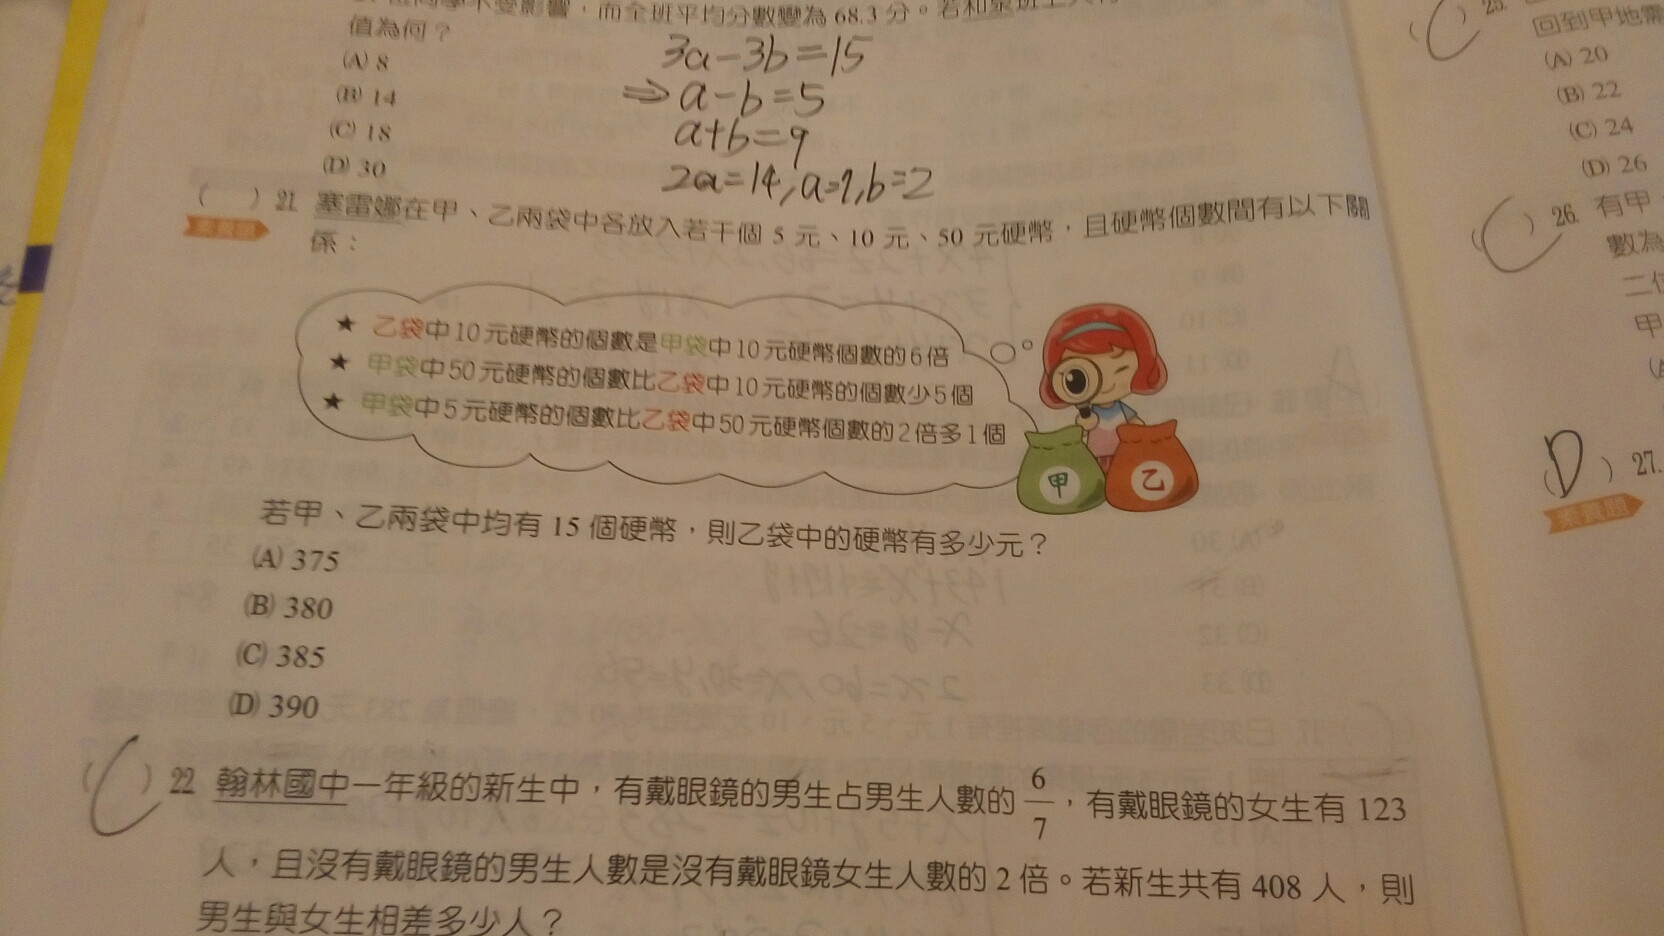 不受影響，而全班平均分數變為 68.3 分。若
值為何？
(A) 8
(B) 14
(C) 18
(D) 30
3a-3b=15
⇒ a-b=5
a+b=9
2a=14, a=7, b=2
( ) 21. 塞雷娜在甲、乙兩袋中各放入若干個 5 元、10 元、50 元硬幣，且硬幣個數間有以下關
素養題
係：
★ 乙袋中10元硬幣的個數是甲袋中10元硬幣個數的6倍
★ 甲袋中50元硬幣的個數比乙袋中10元硬幣的個數少5個
★ 甲袋中5元硬幣的個數比乙袋中50元硬幣個數的2倍多1個
甲 乙
若甲、乙兩袋中均有 15 個硬幣，則乙袋中的硬幣有多少元？
(A) 375
(B) 380
(C) 385
(D) 390
( C ) 22. 翰林國中一年級的新生中，有戴眼鏡的男生占男生人數的 6/7，有戴眼鏡的女生有 123
人，且沒有戴眼鏡的男生人數是沒有戴眼鏡女生人數的 2 倍。若新生共有 408 人，則
男生與女生相差多少人？
( C ) 25.
回到甲地需
(A) 20
(B) 22
(C) 24
(D) 26
( C ) 26. 有甲
數為
甲
( D ) 27.
素養題